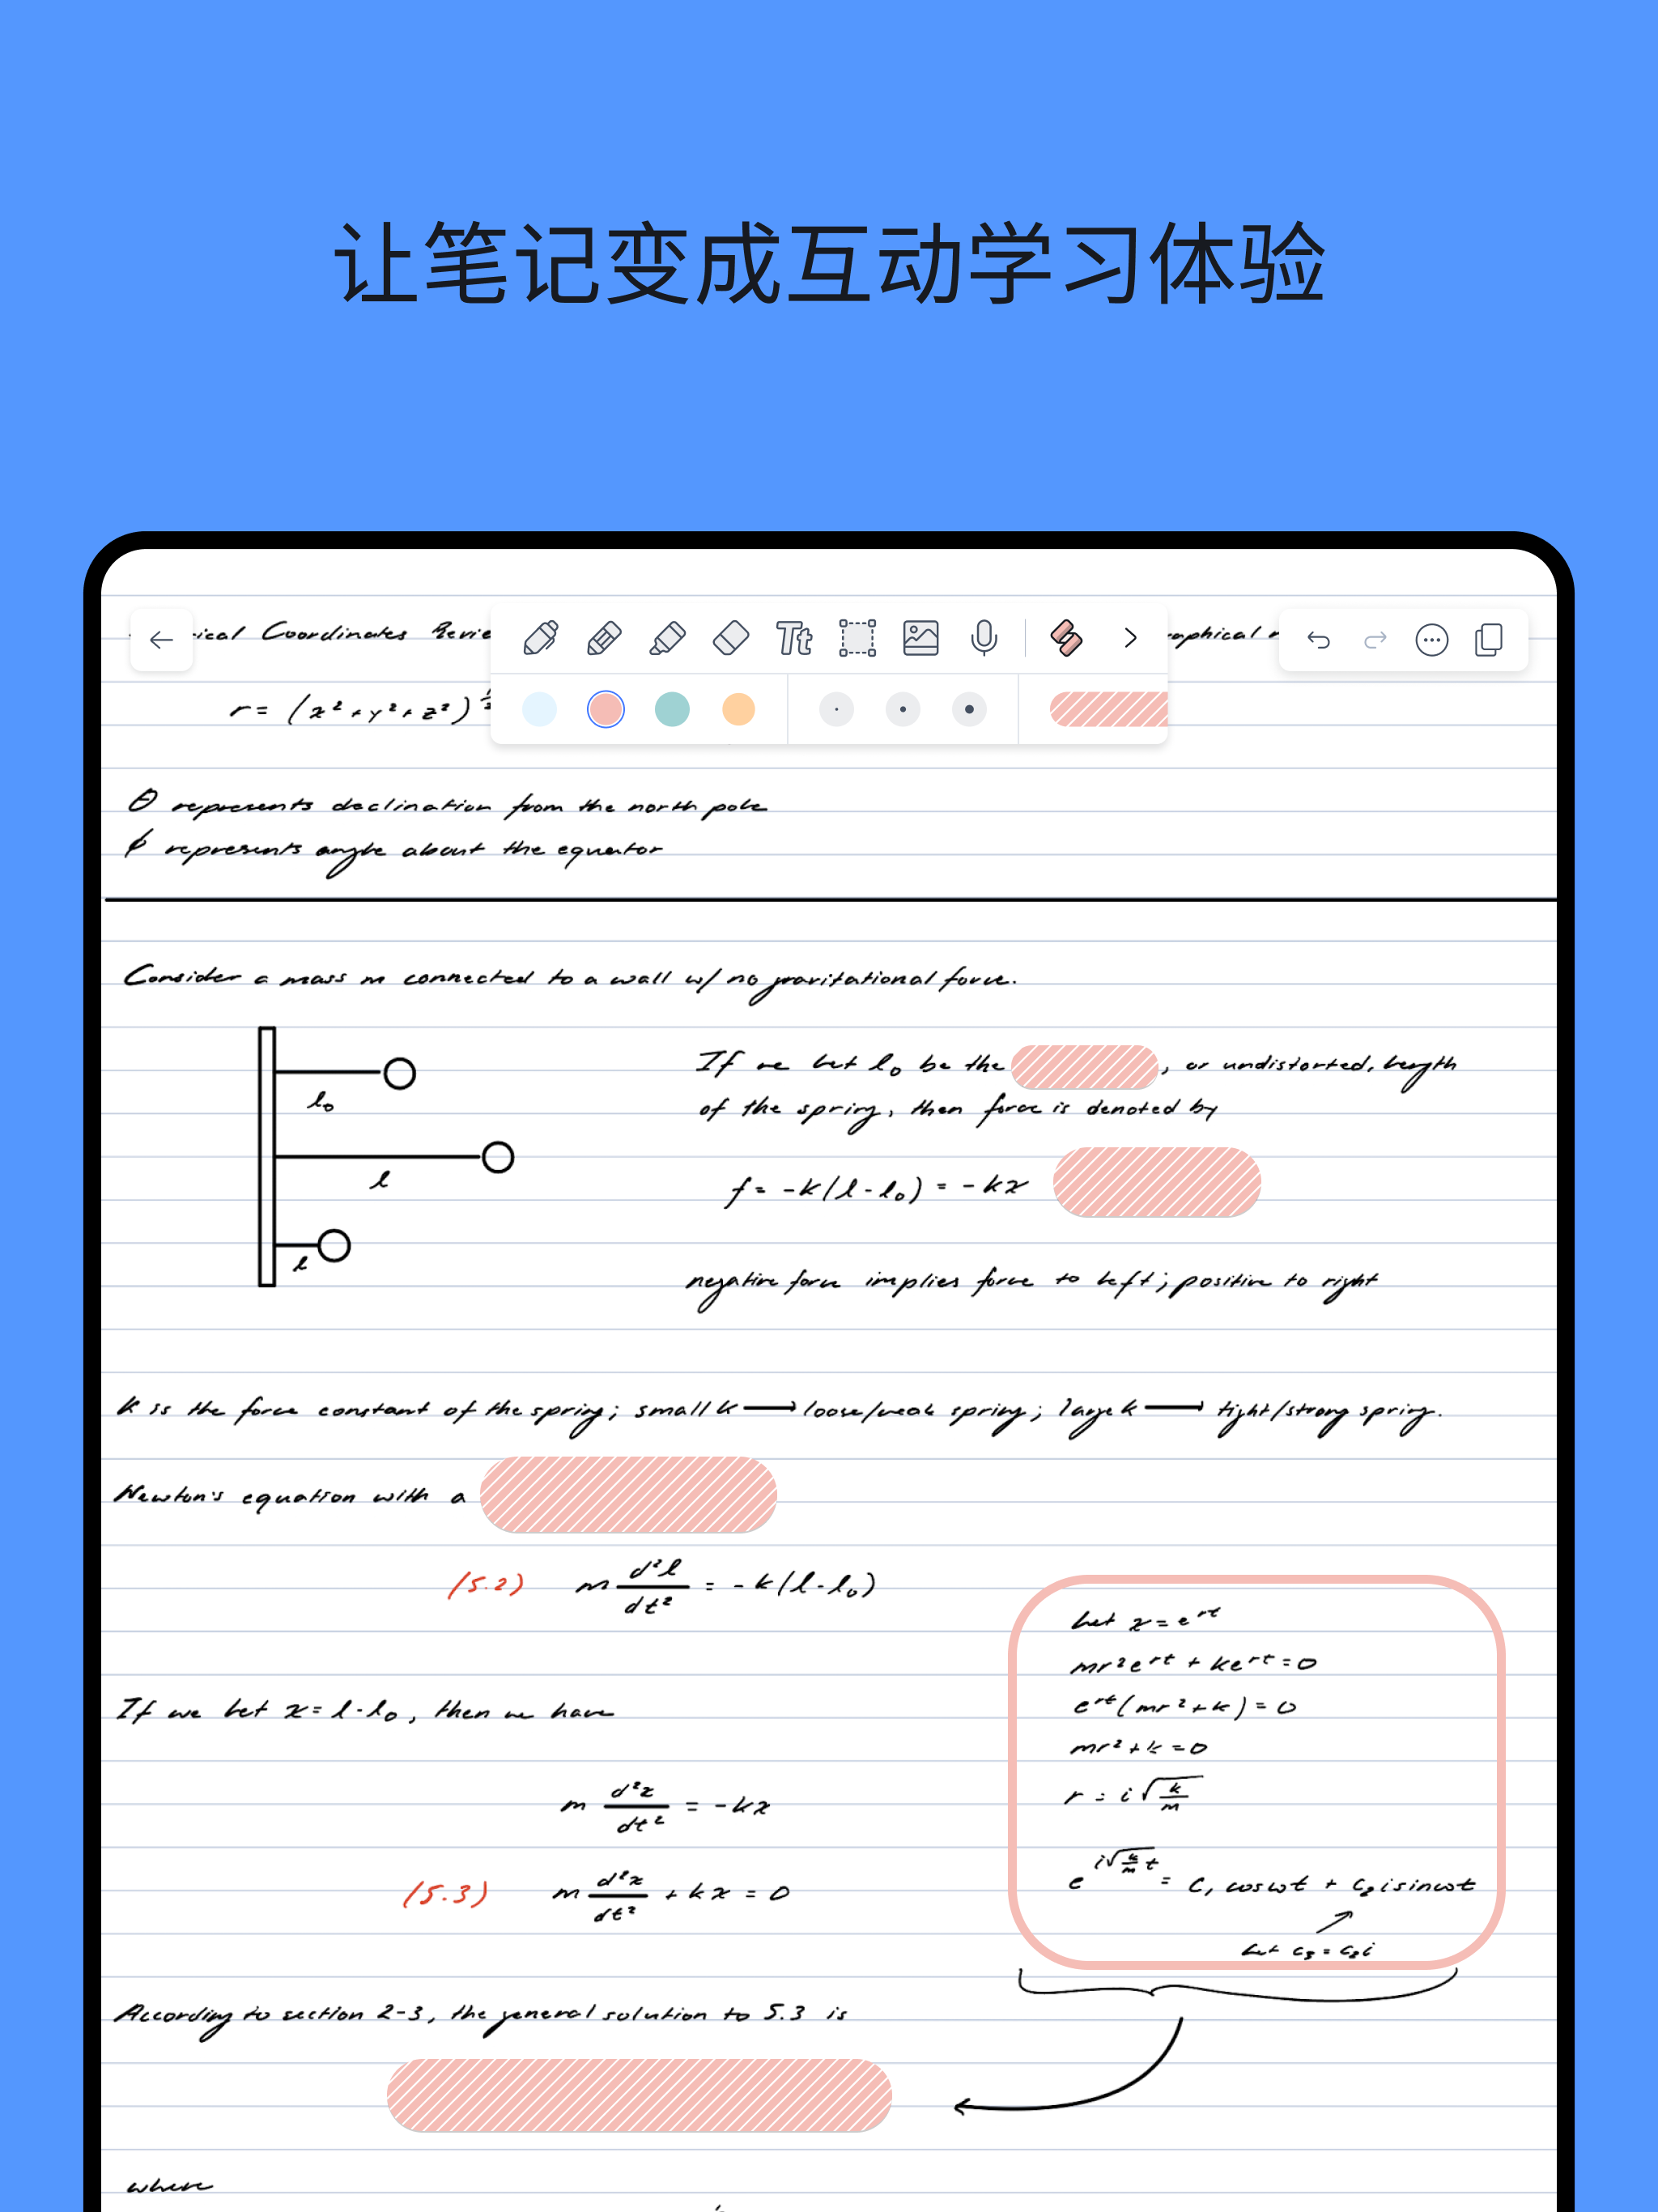 让笔记变成互动学习体验
ical Coordinates Revie
raphical
Tt
r = (x² + y² + z²)
θ represents declination from the north pole
φ represents angle about the equator
Consider a mass m connected to a wall w/ no gravitational force.
l₀
l
l
If we let l₀ be the , or undistorted, length
of the spring, then force is denoted by
f = -k(l - l₀) = -kx
negative force implies force to left; positive to right
k is the force constant of the spring; small k ⟶ loose/weak spring; large k ⟶ tight/strong spring.
Newton's equation with a
(5.2) m d²l/dt² = -k(l - l₀)
If we let x = l - l₀, then we have
m d²x/dt² = -kx
(5.3) m d²x/dt² + kx = 0
let x = e^rt
mr²e^rt + ke^rt = 0
e^rt(mr² + k) = 0
mr² + k = 0
r = i√(k/m)
e^(i√(k/m) t) = c₁ cosωt + c₂ i sinωt
let c₃ = c₂i
According to section 2-3, the general solution to 5.3 is
where